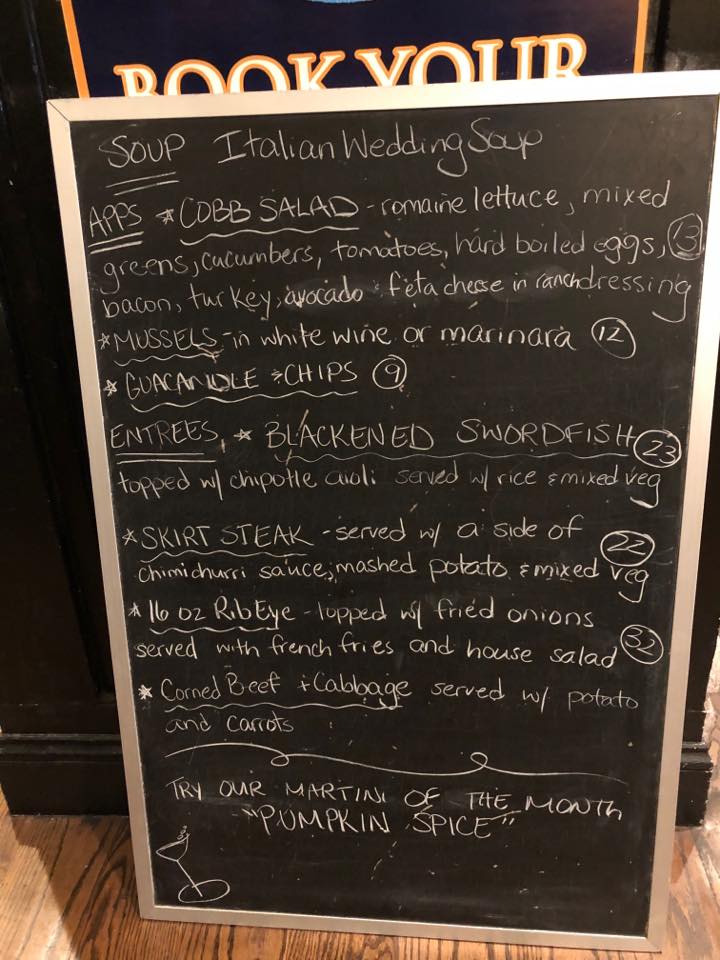 BOOK YOUR
SOUP Italian Wedding Soup
APPS * COBB SALAD - romaine lettuce, mixed
greens, cucumbers, tomatoes, hard boiled eggs, 13
bacon, turkey, avocado & feta cheese in ranch dressing
* MUSSELS - in white wine or marinara 12
* GUACAMOLE + CHIPS 9
ENTREES, * BLACKENED SWORDFISH 23
topped w/ chipotle aioli served w/ rice & mixed veg
* SKIRT STEAK - served w/ a side of 22
chimichurri sauce, mashed potato & mixed veg
* 16 oz RibEye - topped w/ fried onions
served with french fries and house salad 32
* Corned Beef + Cabbage served w/ potato
and carrots
TRY OUR MARTINI OF THE MONTH
"PUMPKIN SPICE"